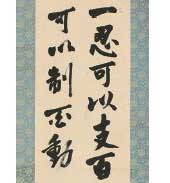 一忍可以支百
可以制百動